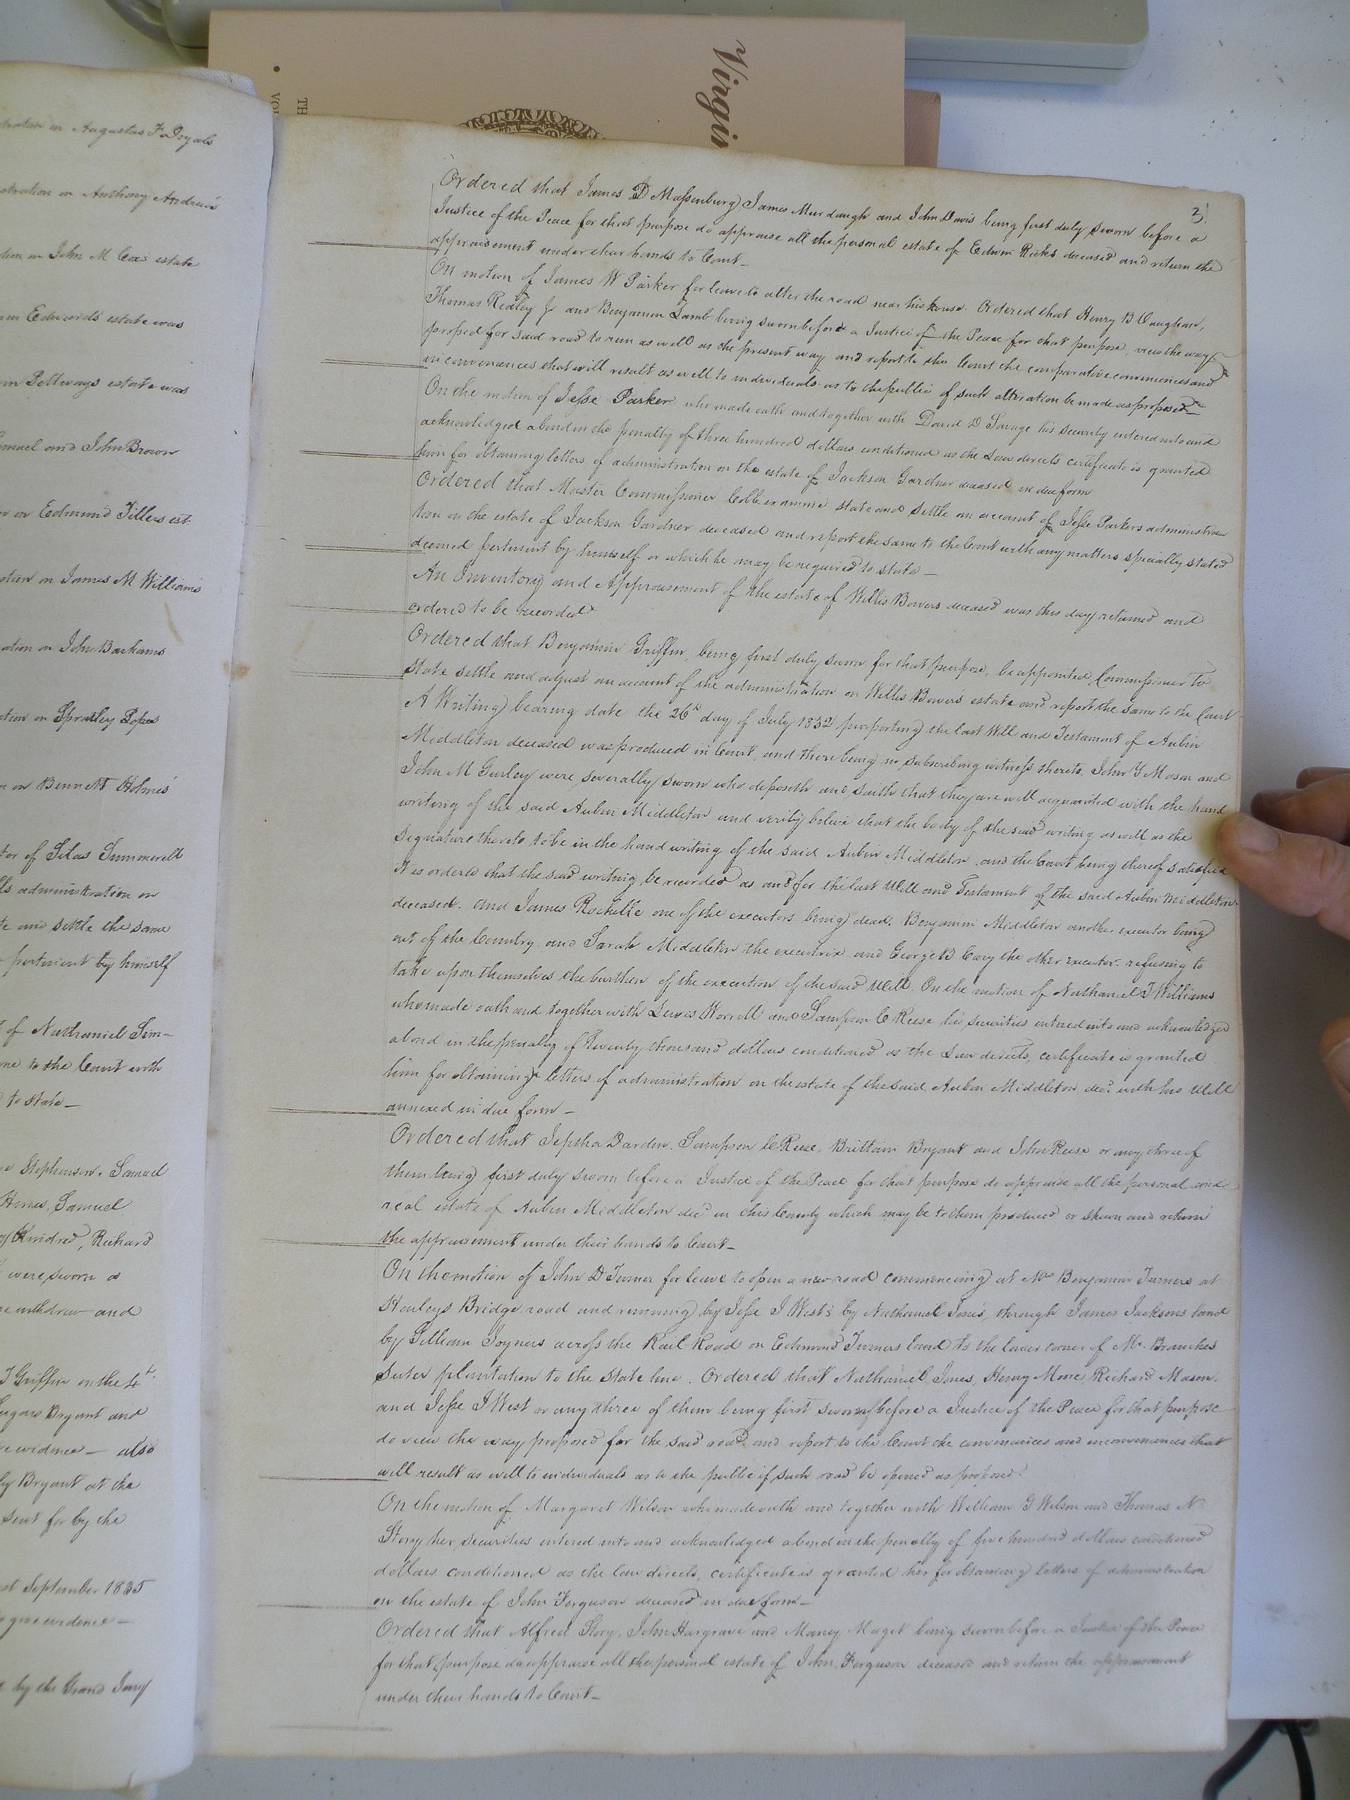 Virgin
TH
VOL
tration on Augustus F Doyals
stration on Anthony Andrews
tion on John M Cox's estate
Edwards estate was
Pettways estate was
muel and John Brown
or on Edmund Tillers est
ation on James M Williams
ation on John Barhams
tion on Spratley Popes
n on Bennett Holmes'
tor of Silas Summerell
lls administration on
te and settle the same
pertinent by himself
of Nathaniel Sim-
me to the Court with
to state_
Stephenson. Samuel
Samuel
Kindred, Richard
were sworn a
withdraw and
T Griffin on the 4th
Bryant and
evidence _ also
ly Bryant at the
sent for by the
September 1835
give evidence _
by the Grand Jury
3
Ordered that James D Massenburg James Murdaugh and John Davis being first duly sworn before a
Justice of the Peace for that purpose do appraise all the personal estate of Edwin Ricks deceased and return the
appraisement under their hands to Court_
On motion of James W Parker for leave to alter the road near his house. Ordered that Henry B Vaughan,
Thomas Ridley Jr and Benjamin Lamb being sworn before a Justice of the Peace for that purpose, view the way
proposed for said road to run as well as the present way and report to the Court the comparative conveniences and
inconveniences that will result as well to individuals as to the public if such alteration be made as proposed_
On the motion of Jesse Parker who made oath and together with David D Savage his security entered into and
acknowledged a bond in the penalty of three hundred dollars conditioned as the Law directs certificate is granted
him for obtaining letters of administration on the estate of Jackson Gardner deceased in due form
Ordered that Master Commissioner Cobb examine state and settle an account of Jesse Parkers administra
tion on the estate of Jackson Gardner deceased and report the same to the Court with any matters specially stated
deemed pertinent by himself or which he may be required to state _
An Inventory and Appraisement of the estate of Willis Bowers deceased was this day returned and
ordered to be recorded
Ordered that Benjamin Griffin, being first duly sworn for that purpose, be appointed Commissioner to
state settle and adjust an account of the administration on Willis Bowers estate and report the same to the Court
A Writing bearing date the 26th day of July 1832 purporting the last Will and Testament of Aubin
Middleton deceased was produced in Court, and there being no subscribing witness thereto, John Y Mason and
John M Gurley were severally sworn who deposeth and saith that they are well acquainted with the hand
writing of the said Aubin Middleton and verily believe that the body of the said writing as well as the
signature thereto to be in the hand writing of the said Aubin Middleton, and the Court being thereof satisfied
It is ordered that the said writing be recorded as and for the last Will and Testament of the said Aubin Middleton
deceased. And James Rochelle one of the executors being dead, Benjamin Middleton another executor being
out of the Country, and Sarah Middleton the executrix and George B Cary the other executor refusing to
take upon themselves the burthen of the execution of the said Will. On the motion of Nathaniel T Williams
who made oath and together with Lewis Worrell and Sampson C Reese his securities entered into and acknowledged
a bond in the penalty of Twenty thousand dollars conditioned as the Law directs, certificate is granted
him for obtaining letters of administration on the estate of the said Aubin Middleton decd with his Will
annexed in due form _
Ordered that Jeptha Darden, Sampson C Reese, Brittain Bryant and John Reese or any three of
them being first duly sworn before a Justice of the Peace for that purpose do appraise all the personal and
real estate of Aubin Middleton decd in this County which may be to them produced or shewn and return
the appraisement under their hands to Court_
On the motion of John D Turner for leave to open a new road commencing at Mr Benjamin Turners at
Bridge road and running by Jesse J West's by Nathaniel Jones, through James Jacksons land
by Joyners across the Rail Road on Edmund Turners land to the lower corner of Mr Branches
plantation to the State line. Ordered that Nathaniel Jones, Henry Mone, Richard Mason,
and Jesse J West or any three of them being first sworn before a Justice of the Peace for that purpose
do view the way proposed for the said road, and report to the Court the conveniences and inconveniences that
will result as well to individuals as to the public if such road be opened as proposed
On the motion of Margaret Wilson who made oath and together with William G Wilson and Thomas N
Story her securities entered into and acknowledged a bond in the penalty of five hundred dollars conditioned
dollars conditioned as the law directs, certificate is granted her for obtaining letters of administration
on the estate of John Ferguson deceased in due form_
Ordered that Alfred Story, John Hargrave and Maget being sworn before a Justice of the Peace
for that purpose do appraise all the personal estate of John Ferguson deceased and return the appraisement
under their hands to Court_